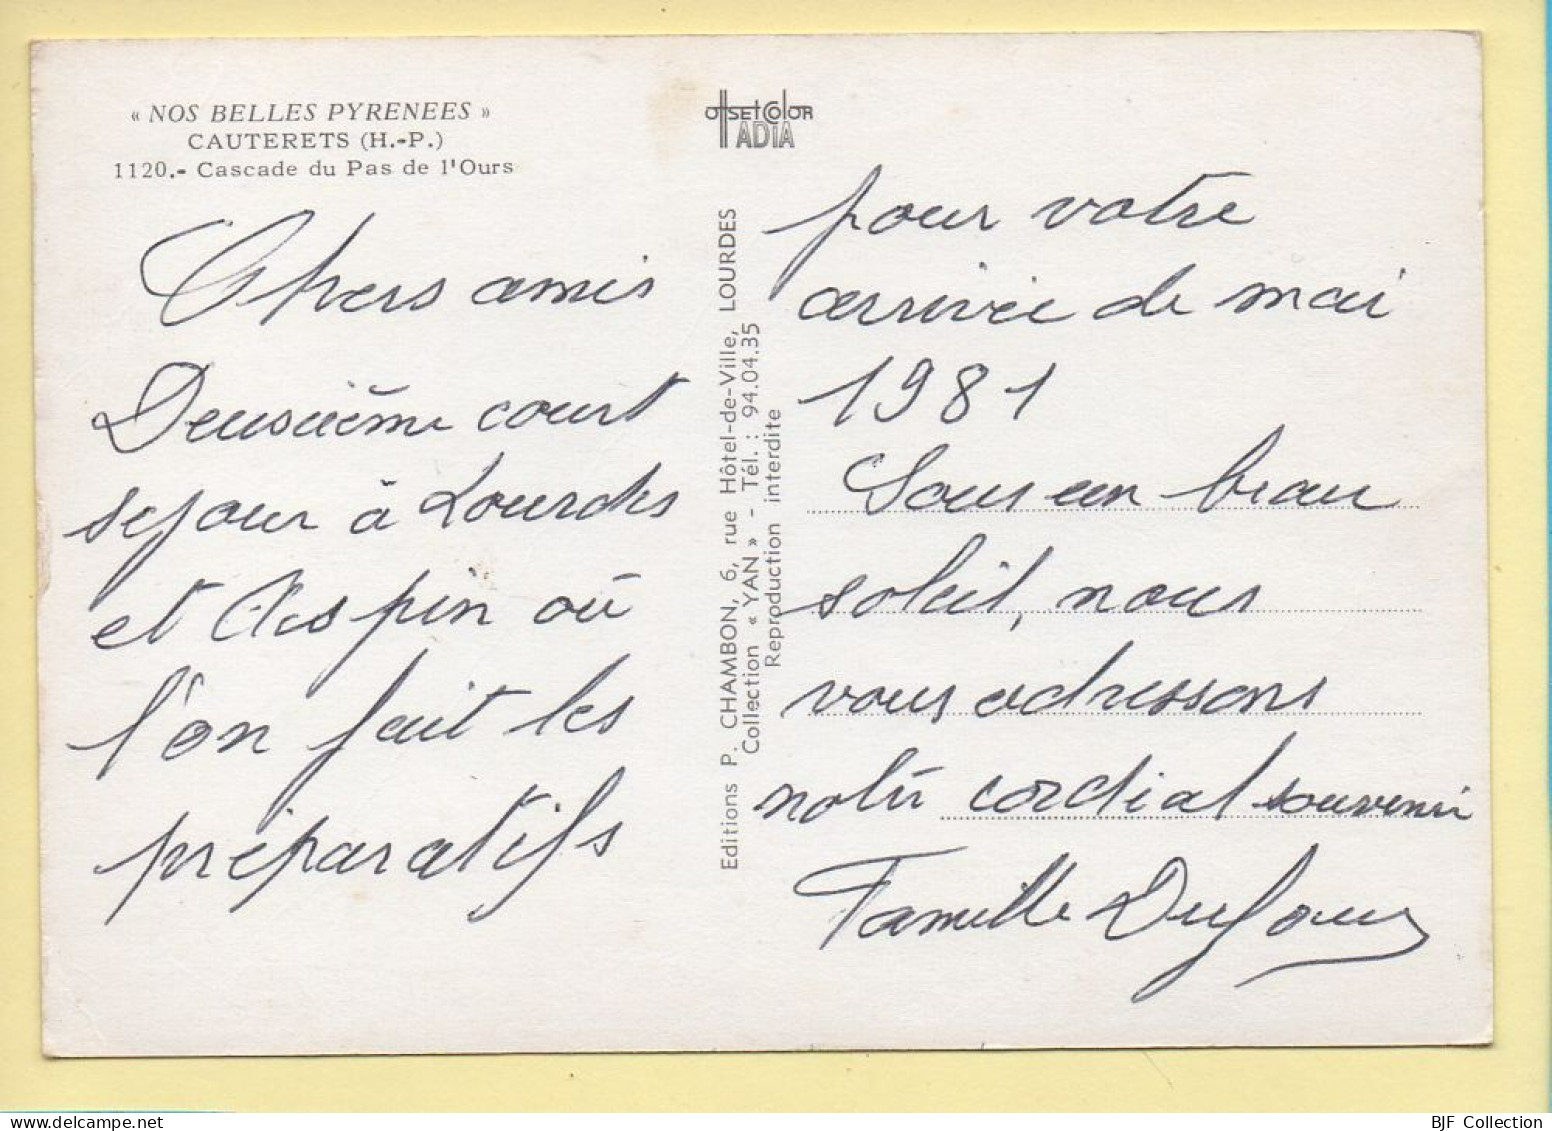 « NOS BELLES PYRENEES »
CAUTERETS (H.-P.)
1120.- Cascade du Pas de l'Ours
OFFSET COLOR
IADIA
Chers amis
Deuxième court
sejour à Lourdes
et Aespin où
l'on fait les
préparatifs
Editions P. CHAMBON, 6, rue Hôtel-de-Ville, LOURDES
Collection « YAN » - Tél. : 94.04.35
Reproduction interdite
pour votre
arrivée de mai
1981
Sous un beau
soleil, nous
vous adressons
notre cordial souvenir
Famille Dufour
BJF Collection